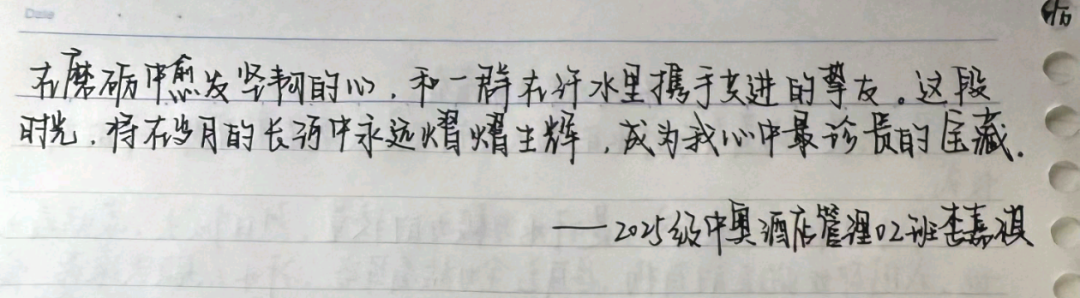 Date
在磨砺中愈发坚韧的心,和一群在汗水里携手共进的挚友。这段
时光,将在岁月的长河中永远熠熠生辉,成为我心中最珍贵的宝藏.
——2025级中奥酒店管理02班李嘉祺